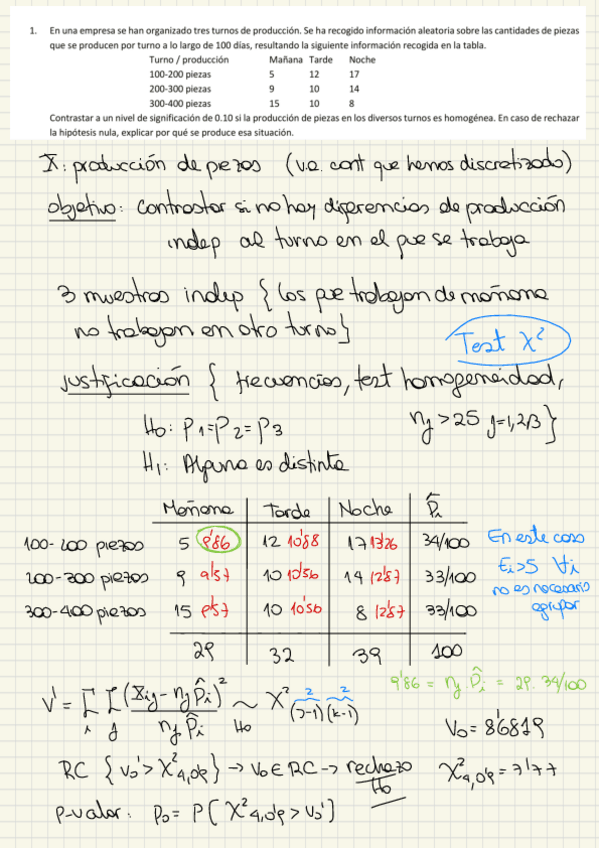 1. En una empresa se han organizado tres turnos de producción. Se ha recogido información aleatoria sobre las cantidades de piezas
que se producen por turno a lo largo de 100 días, resultando la siguiente información recogida en la tabla.
Turno / producción Mañana Tarde Noche
100-200 piezas 5 12 17
200-300 piezas 9 10 14
300-400 piezas 15 10 8
Contrastar a un nivel de significación de 0.10 si la producción de piezas en los diversos turnos es homogénea. En caso de rechazar
la hipótesis nula, explicar por qué se produce esa situación.
X: producción de piezas (v.a. cont que hemos discretizado)
objetivo: contrastar si no hay diferencias de producción
indep al turno en el que se trabaja
3 muestras indep {los que trabajan de mañana
no trabajan en otro turno}
Test χ²
justificación { frecuencias, test homogeneidad,
H₀: P₁=P₂=P₃ nⱼ>25 j=1,2,3}
H₁: Alguna es distinta
Mañana Tarde Noche P̂ᵢ
100-200 piezas 5 9'86 12 10'88 17 13'26 34/100
200-300 piezas 9 9'57 10 10'56 14 12'87 33/100
300-400 piezas 15 9'57 10 10'56 8 12'87 33/100
29 32 39 100
En este caso
Eᵢ>5 ∀i
no es necesario
agrupar
9'86 = nⱼ·P̂ᵢ = 29·34/100
V' = Σᵢ Σⱼ (Xᵢⱼ - nⱼP̂ᵢ)² / nⱼP̂ᵢ ~ H₀ χ² (J-1)(k-1) 2 2
V₀ = 8'6819
RC {V₀' > χ²₄,₀'₉} → V₀ ∈ RC → rechazo H₀
χ²₄,₀'₉ = 7'77
p-valor: P₀ = P(χ²₄,₀'₉ > V₀')